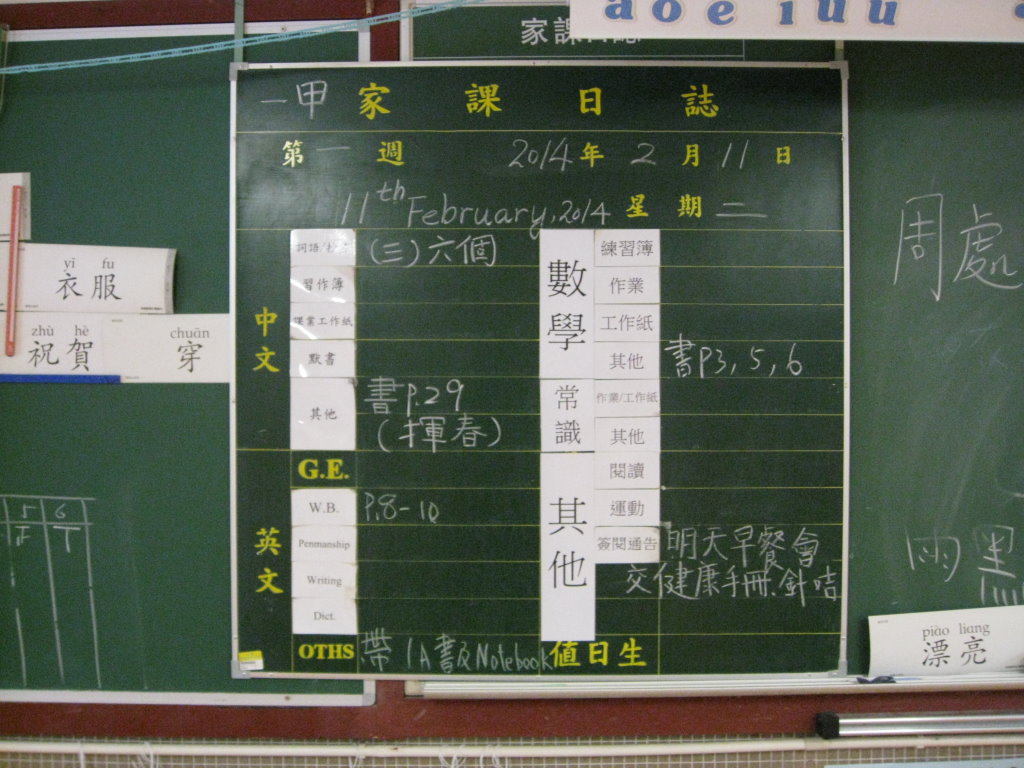 a o e i u ü
家課日誌
一甲 家課日誌
第一週 2014年2月11日
11th February, 2014 星期二
中文
詞語/
(三)六個
習作簿
課業工作紙
默書
其他
書p.29
(揮春)
英文
G.E.
W.B.
P.8-10
Penmanship
Writing
Dict.
OTHS
帶 1A書及Notebook
數學
練習簿
作業
工作紙
其他
書p3, 5, 6
常識
作業/工作紙
其他
其他
閱讀
運動
簽閱通告
明天早餐會
交健康手冊.針咭
值日生
yī fu
衣服
zhù hè
祝賀
chuān
穿
5 6
F T
周處
雨黑
piào liang
漂亮